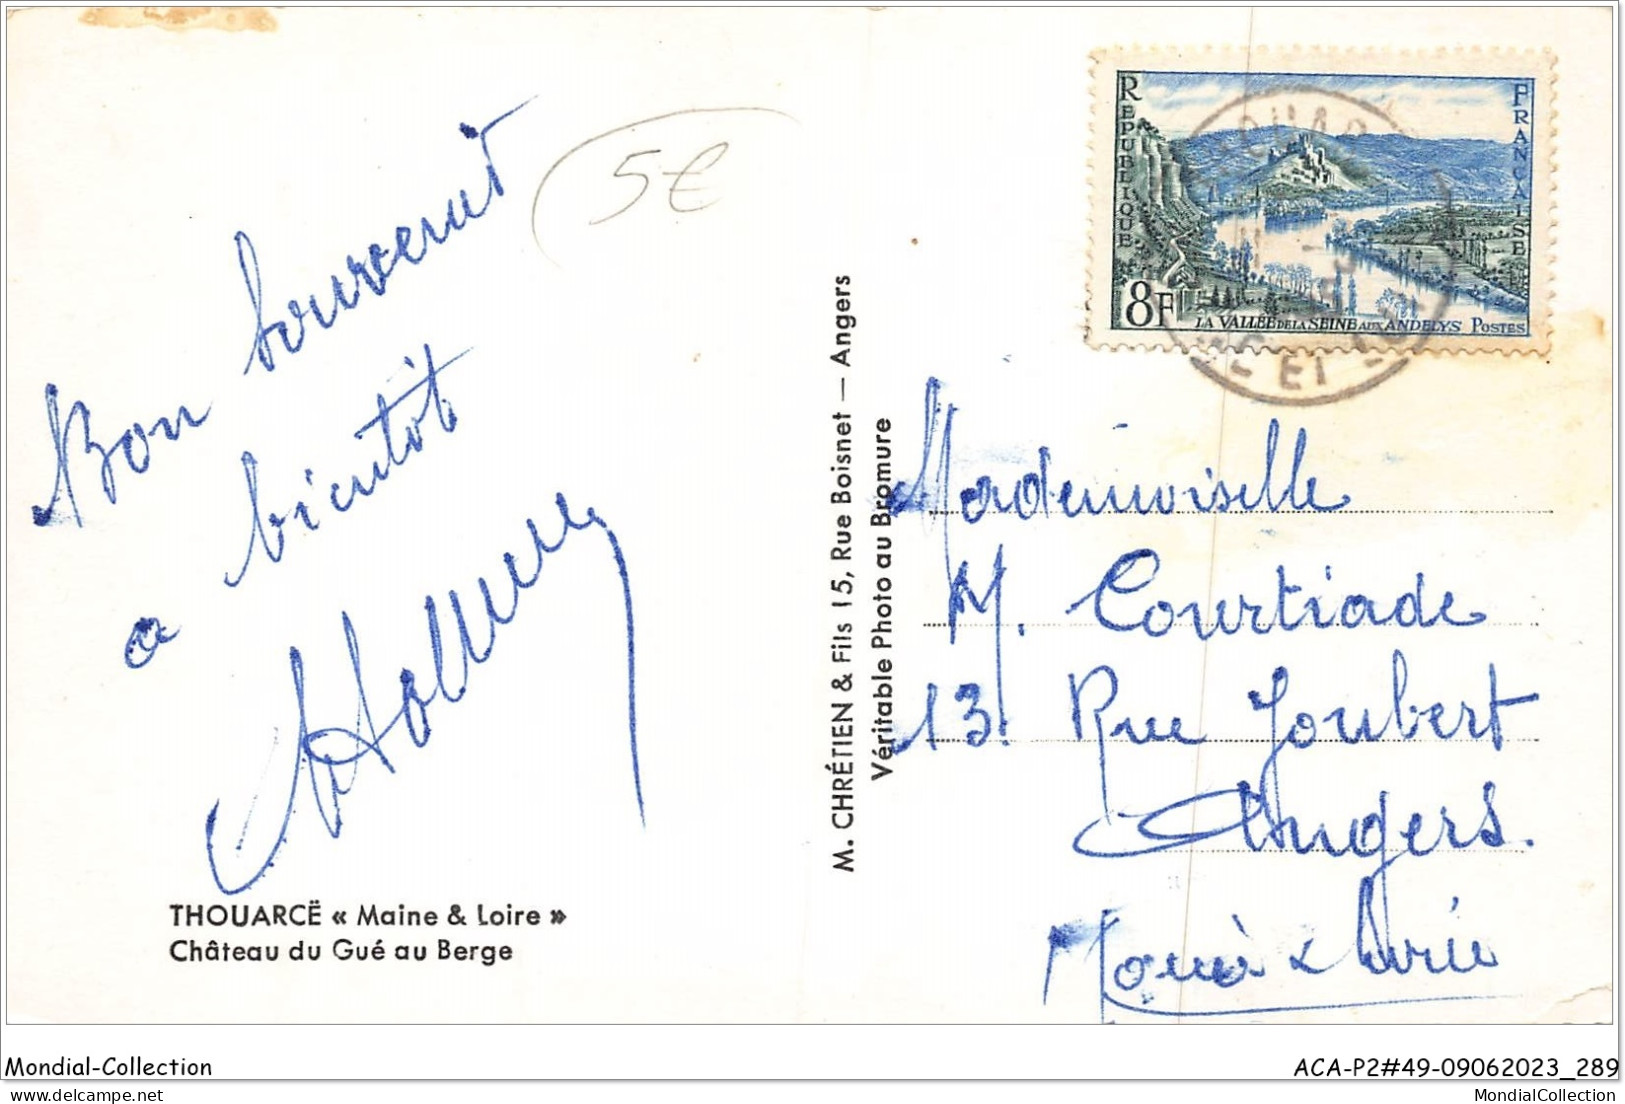 5€
Bon souvenir
a bientôt
THOUARCË « Maine & Loire »
Château du Gué au Berge
M. CHRÉTIEN & Fils 15, Rue Boisnet — Angers
Véritable Photo au Bromure
REPUBLIQUE
FRANCAISE
8F
LA VALLEE DE LA SEINE AUX ANDELYS POSTES
ET
Mademoiselle
M. Courtiade
13. Rue Joubert
Angers.
Maine & Loire
Mondial-Collection
ACA-P2#49-09062023_289
MondialCollection